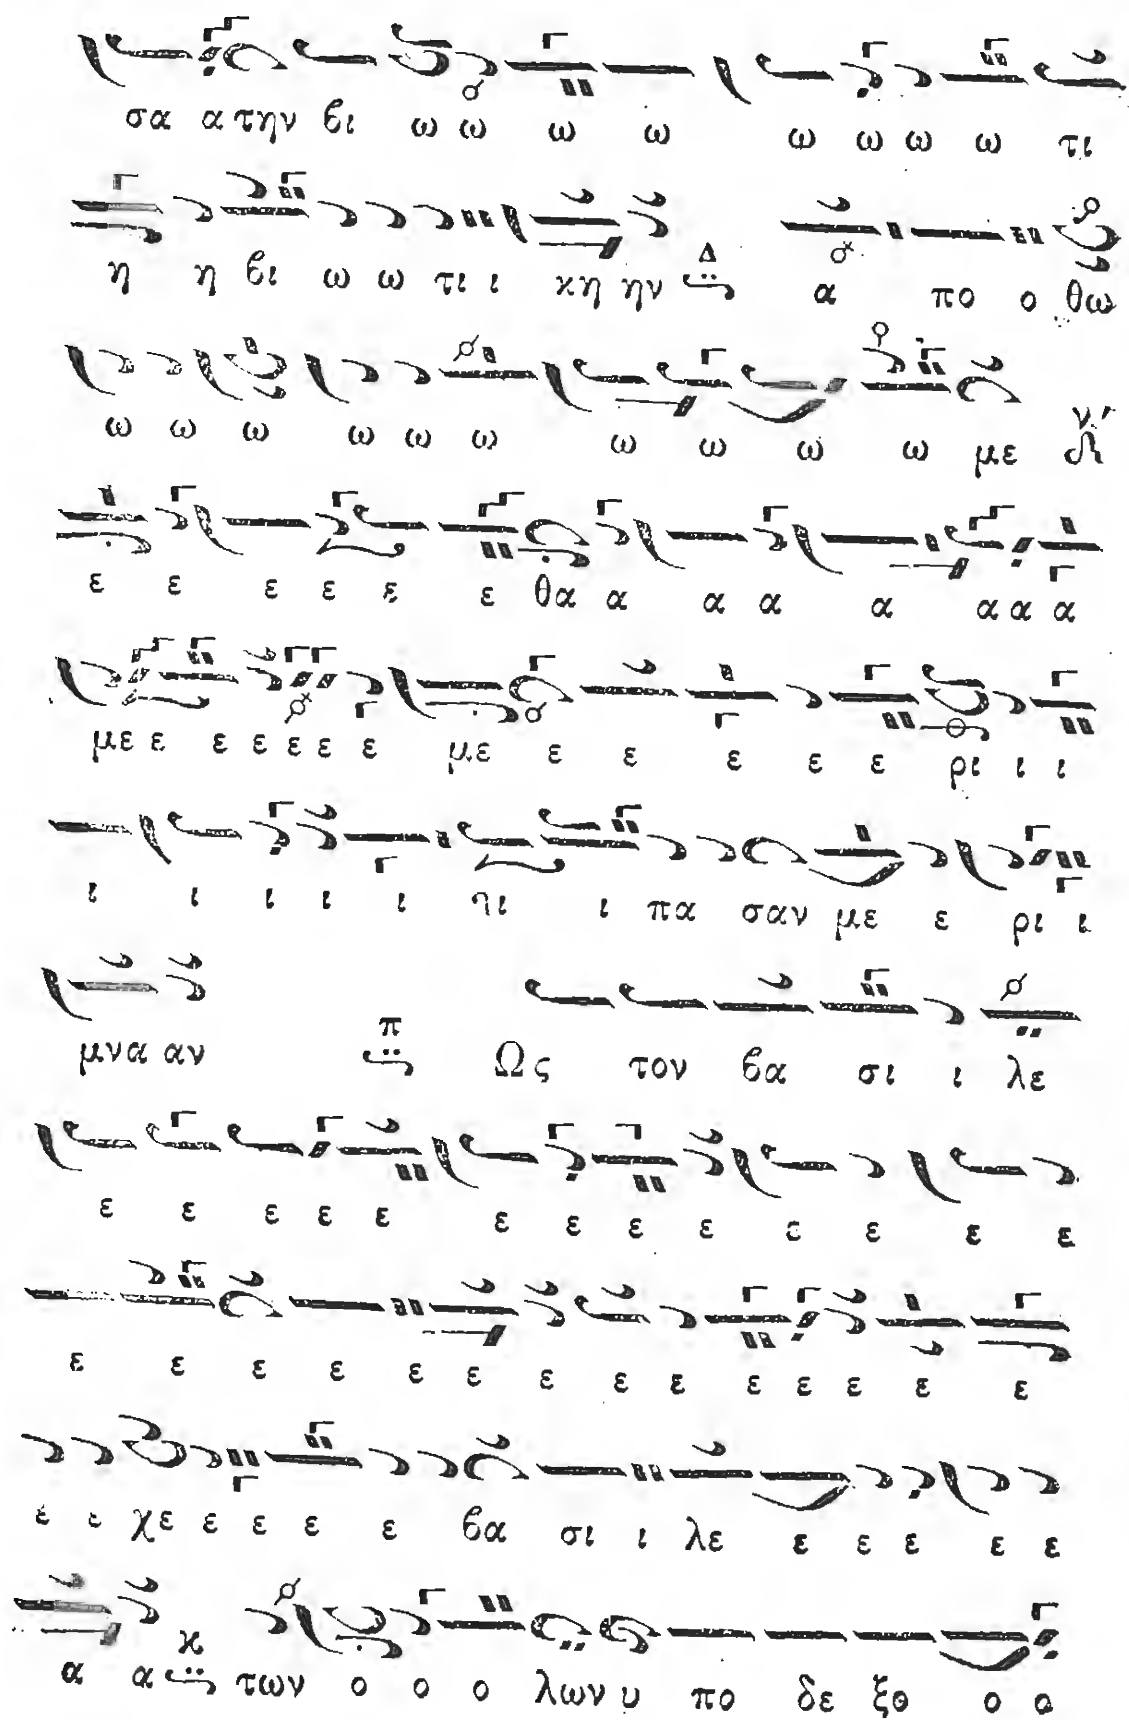 σα α την βι ω ω ω ω ω ω ω ω τι
η η βι ω ω τι ι κη ην Δ α πο ο θω
ω ω ω ω ω ω ω ω ω ω με ν΄
ε ε ε ε ε ε θα α α α α α α α
με ε ε ε ε ε ε με ε ε ε ε ε ρι ι ι
ι ι ι ι ι τι ι πα σαν με ε ρι ι
μνα αν π Ως τον βα σι ι λε
ε ε ε ε ε ε ε ε ε ε ε ε ε
ε ε ε ε ε ε ε ε ε ε ε ε ε ε
ε ε χε ε ε ε ε βα σι ι λε ε ε ε ε ε
α α κ των ο ο ο λων υ πο δε ξο ο ο